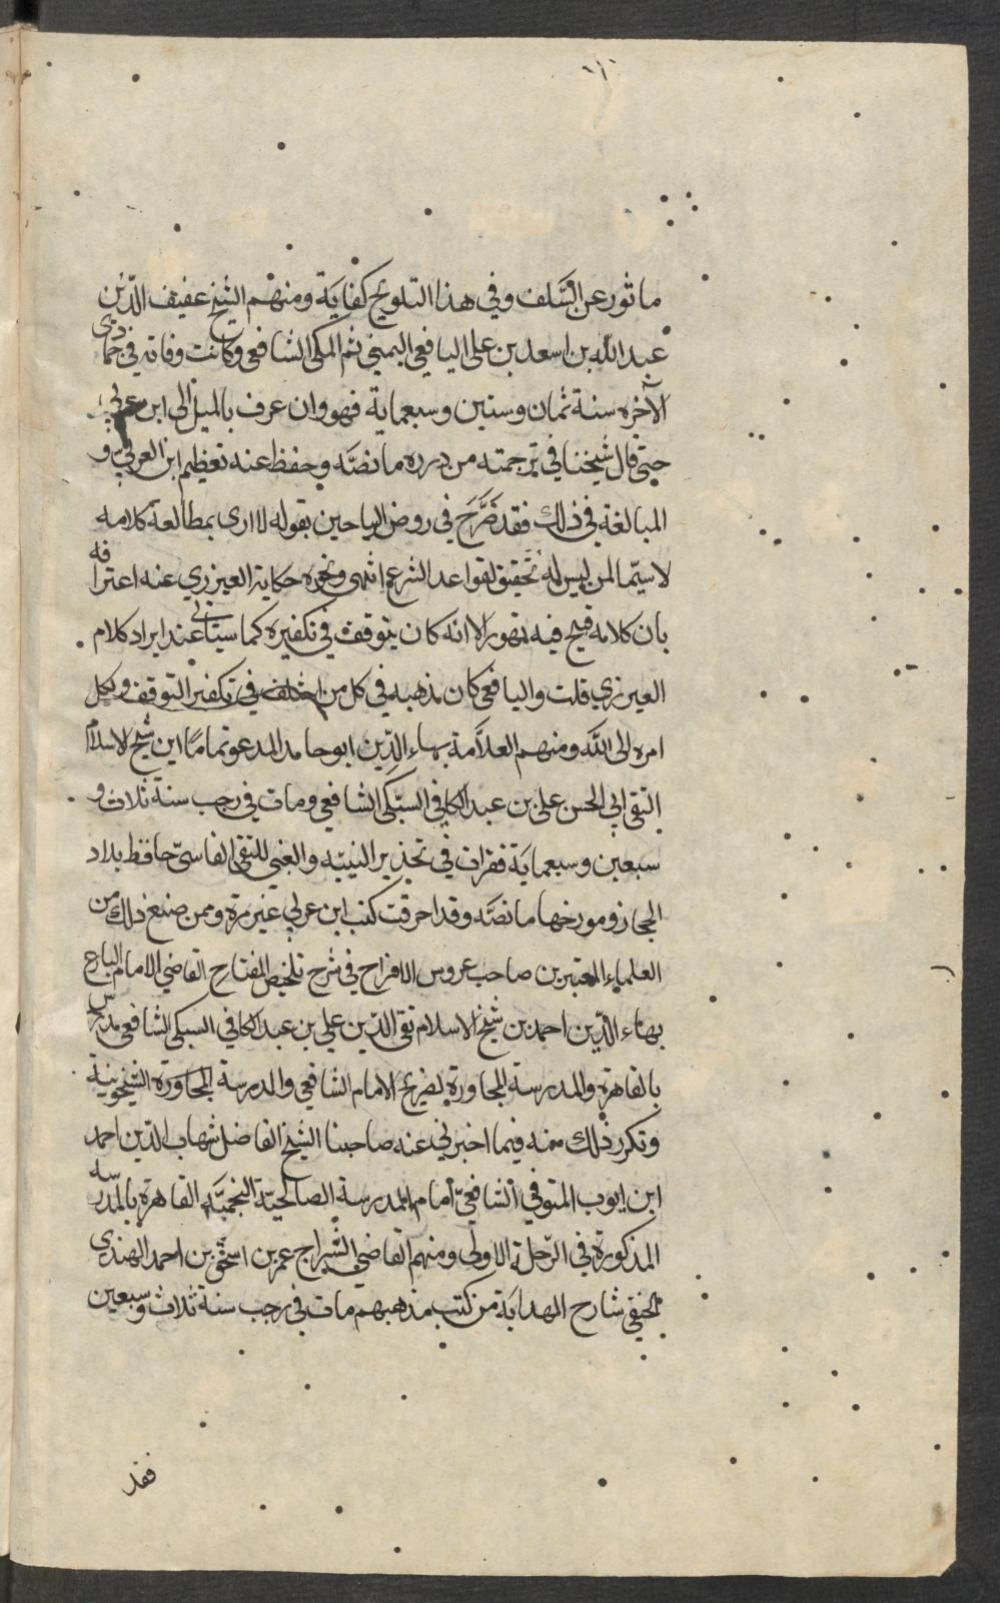 ماثور عن السلف وفي هذا التلويح كفاية ومنهم الشيخ عفيف الدين
عبد الله بن اسعد بن على اليافعي اليمني ثم المكي الشافعي وكانت وفاته في جمادى
الآخره سنة ثمان وستين وسبعماية فهو وان عرف بالميل الى ابن عربي
حتى قال شيخنا في ترجمته من درره ما نصّه وحفظ عنه تعظيم ابن العربي و
المبالغة في ذلك فقد صَرَّحَ في روض الرياحين بقوله لا ارى بمطالعة كلامه
لا سيّما لمن ليس له تحقيق لقواعد الشرع انتهى ونحوه حكاية العيزري عنه اعترافه
بان كلامه قبيح فيه تهور الا انه كان يتوقف في تكفيره كما سيتاتى عند ايراد كلام
العيزري قلت واليافعي كان مذهبه في كل من اختلف في تكفير التوقف ويكل
امره الى الله ومنهم العلاّمة بهاء الدّين ابو حامد المدعو تمامًا ابن شيخ الاسلام
التقى ابي الحسن على بن عبد الكافي السبّكى الشافعي ومات في رجب سنة ثلاث و
سبعين وسبعماية فقرات في تحذير النبيه والغبي للتقى الفاسيّ حافظ بلاد
الحجاز ومورخها ما نصّه وقد احرقت كتب ابن عربي غير مرة وممن صنع ذلك من
العلماء المعتبرين صاحب عروس الافراح في شرح تلخيص المفتاح القاضي الامام البارع
بهاء الدّين احمد بن شيخ الاسلام تقي الدّين علي بن عبد الكافي السبكي الشافعي مدرس
بالقاهرة والمدرسة المجاورة لضريح الامام الشافعي والدرسة المجاورة الشيخونية
وتكرر ذلك منه فيما اخبرني عنه صاحبنا الشيخ الفاضل شهاب الدّين احمد
ابن ايوب المتوفي الشافعيّ امام المدرسة الصالحيّة النجميّة القاهرة بالمدرسه
المذكورة في الرّحلة الاولى ومنهم القاضي السّراج عمر بن اسحق بن احمد الهندي
الحنفي شارح الهداية من كتب مذهبهم مات في رجب سنة ثلاث وسبعين
فقد